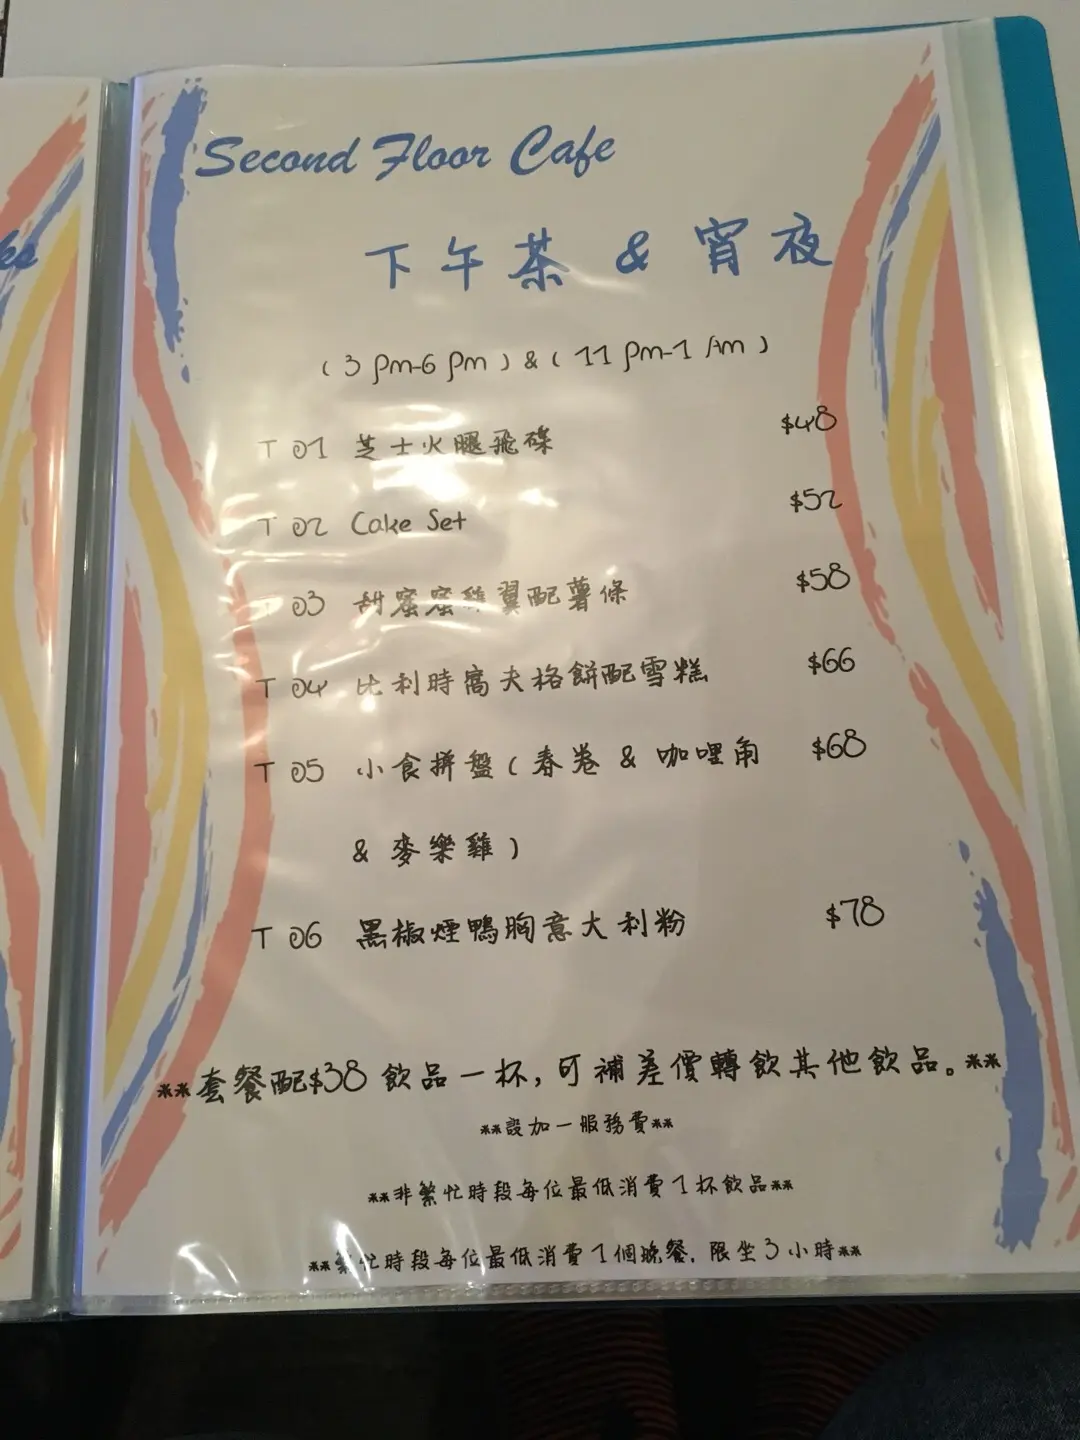 ks
Second Floor Cafe
下午茶 & 宵夜
( 3 pm-6 pm ) & ( 11 pm-1 Am )
T 01 芝士火腿飛碟 $48
T 02 Cake Set $52
T 03 甜蜜蜜雞翼配薯條 $58
T 04 比利時窩夫格餅配雪糕 $66
T 05 小食拼盤 ( 春卷 & 咖哩角 $68
& 麥樂雞 )
T 06 黑椒煙鴨胸意大利粉 $78
**套餐配$38 飲品一杯, 可補差價轉飲其他飲品。**
**設加一服務費**
**非繁忙時段每位最低消費 1 杯飲品**
**繁忙時段每位最低消費 1 個晚餐, 限坐 3 小時**